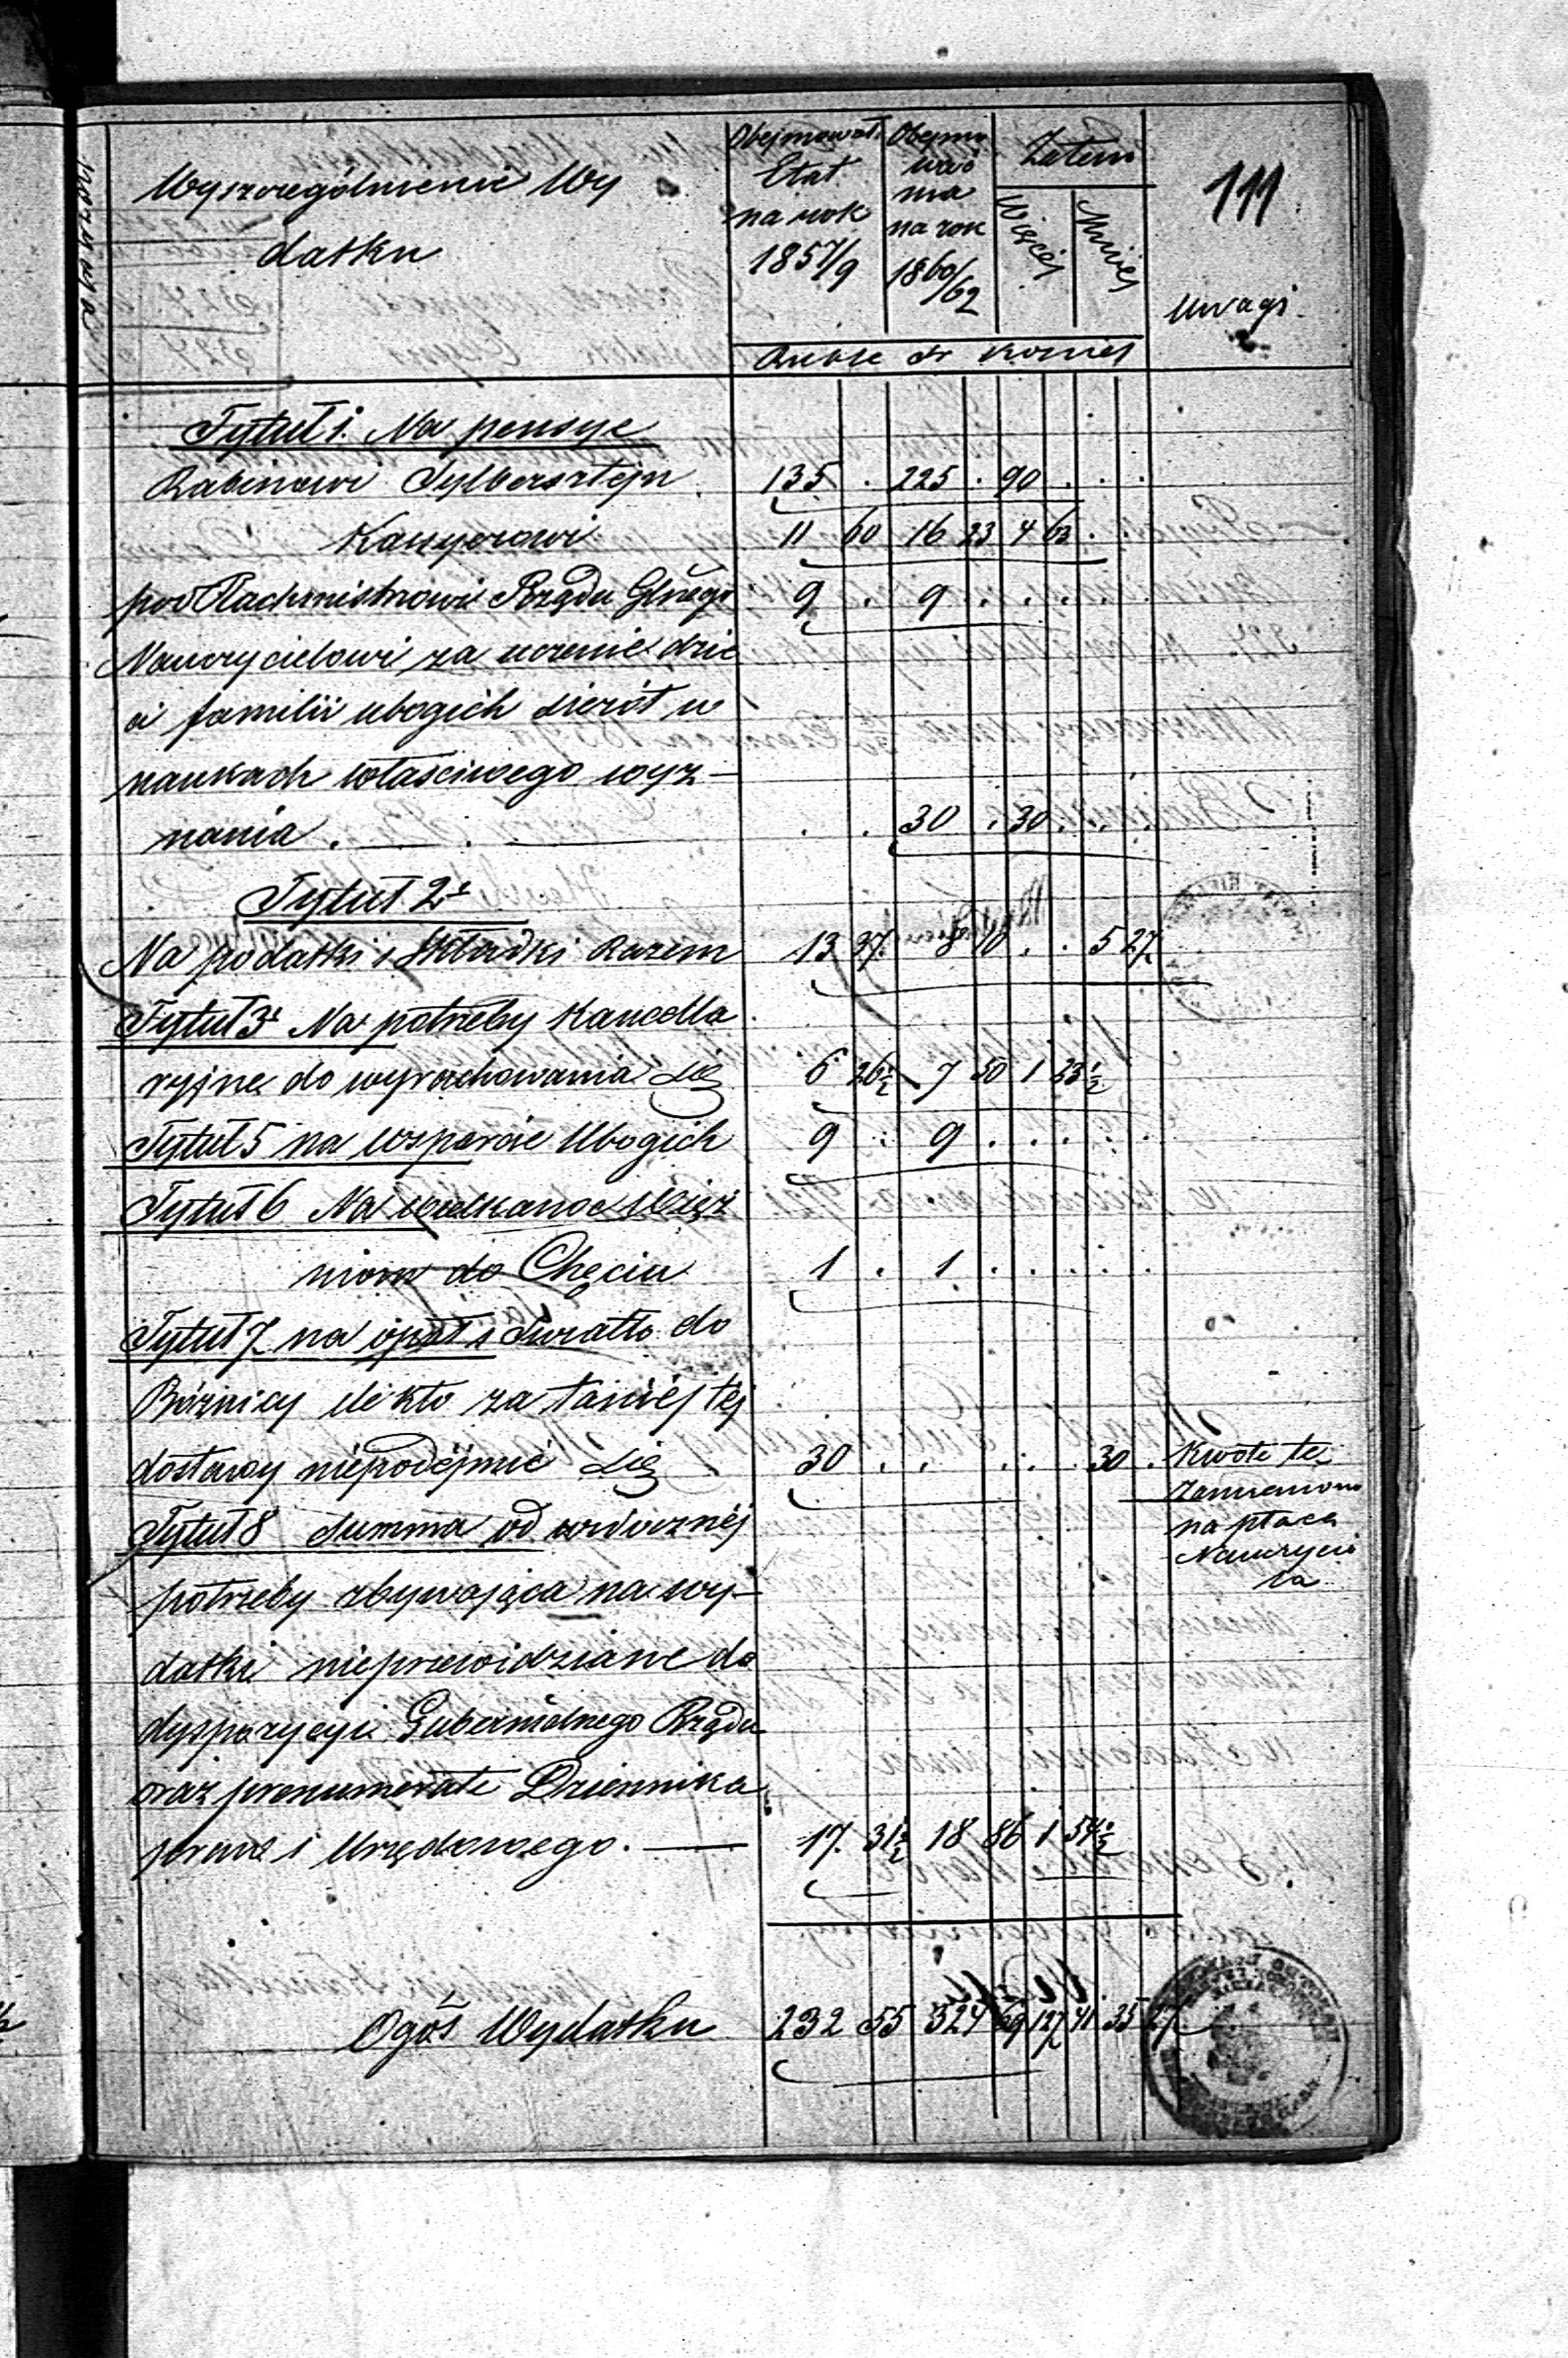 111
Wyszczególnienie Wy
datku
Obejmował Etat na rok 1857/9
Obejmo wać ma na rok 1860/62
Zatem
Więcéj
Mniéj
Uwagi
Ruble sr kopiiek
Tytuł 1. Na pensye
Rabinowi Sylbersztejn 135 . 225 . 90 . . .
Kassyerowi 11 60 16 23 4 63 . .
pod Rachmistrzowi Rządu Glnego 9 . 9 . . . . .
Nauczycielowi za uczenie dzie
ci familii ubogich sierót w
naukach właściwego wyz-
nania . — . . . 30 . 30 . . .
Tytuł 2i
Na podatki i Składki Razem 13 37. 8 10 . . 5 27
Tytuł 3i Na potrzeby Kancella
ryjne do wyrachowania się 6 26½ 7 50 1 23½
Tytuł 5 na wsparcie Ubogich 9 . 9 . . . . .
Tytuł 6 Na wielkanoc Więź
niom do Chęcin 1 . 1 . . . . .
Tytuł 7 na opał i Światło do
Bóźnicy ile kto za taniéj téj
dostawy niepodéjmie się 30 . . . . . 30 .
Kwotę tę
Zamieniono
na płacę
Nauczycie
la
Tytuł 8 Summa od widocznéj
potrzeby zbywająca na wy-
datki nieprzewidziane do
dyspozycyi Gubernialnego Rządu
oraz prenumerate Dziennika
praw i Urzędowego. — 17. 31½ 18 86 1 54½
Ogół Wydatku 232 55 324 69 127 41 35 27